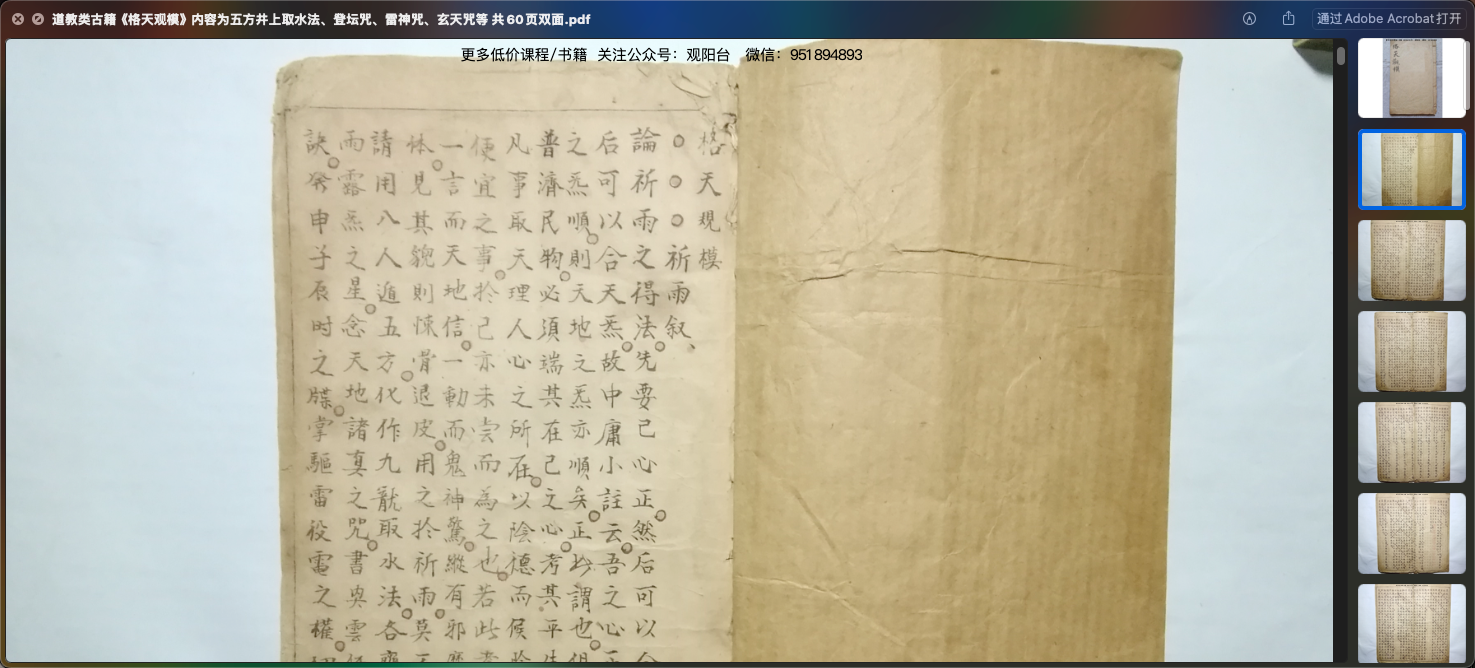 道教类古籍《格天观模》内容为五方井上取水法、登坛咒、雷神咒、玄天咒等 共60页双面.pdf
通过Adobe Acrobat打开
更多低价课程/书籍 关注公众号：观阳台 微信：951894893
格天規模
祈雨叙
論祈雨之得法先要己心正然后可以
后可以合天炁故中庸小註云吾之心正
之炁順則天地之炁亦順矣正此謂也
普濟民物必須端其在己之心考其平生
凡事取天理人心之所在以陰德而候
便宜之事於己亦未尝而為之也若此
一言而天地信一動而鬼神驚縱有邪
体見其貌則悚骨退皮用之於祈雨莫
請用八人遁五方化作九龍取水法各
雨露炁之星念天地諸真之咒書奥雲
訣発申子辰时之牒掌驅雷役電之權